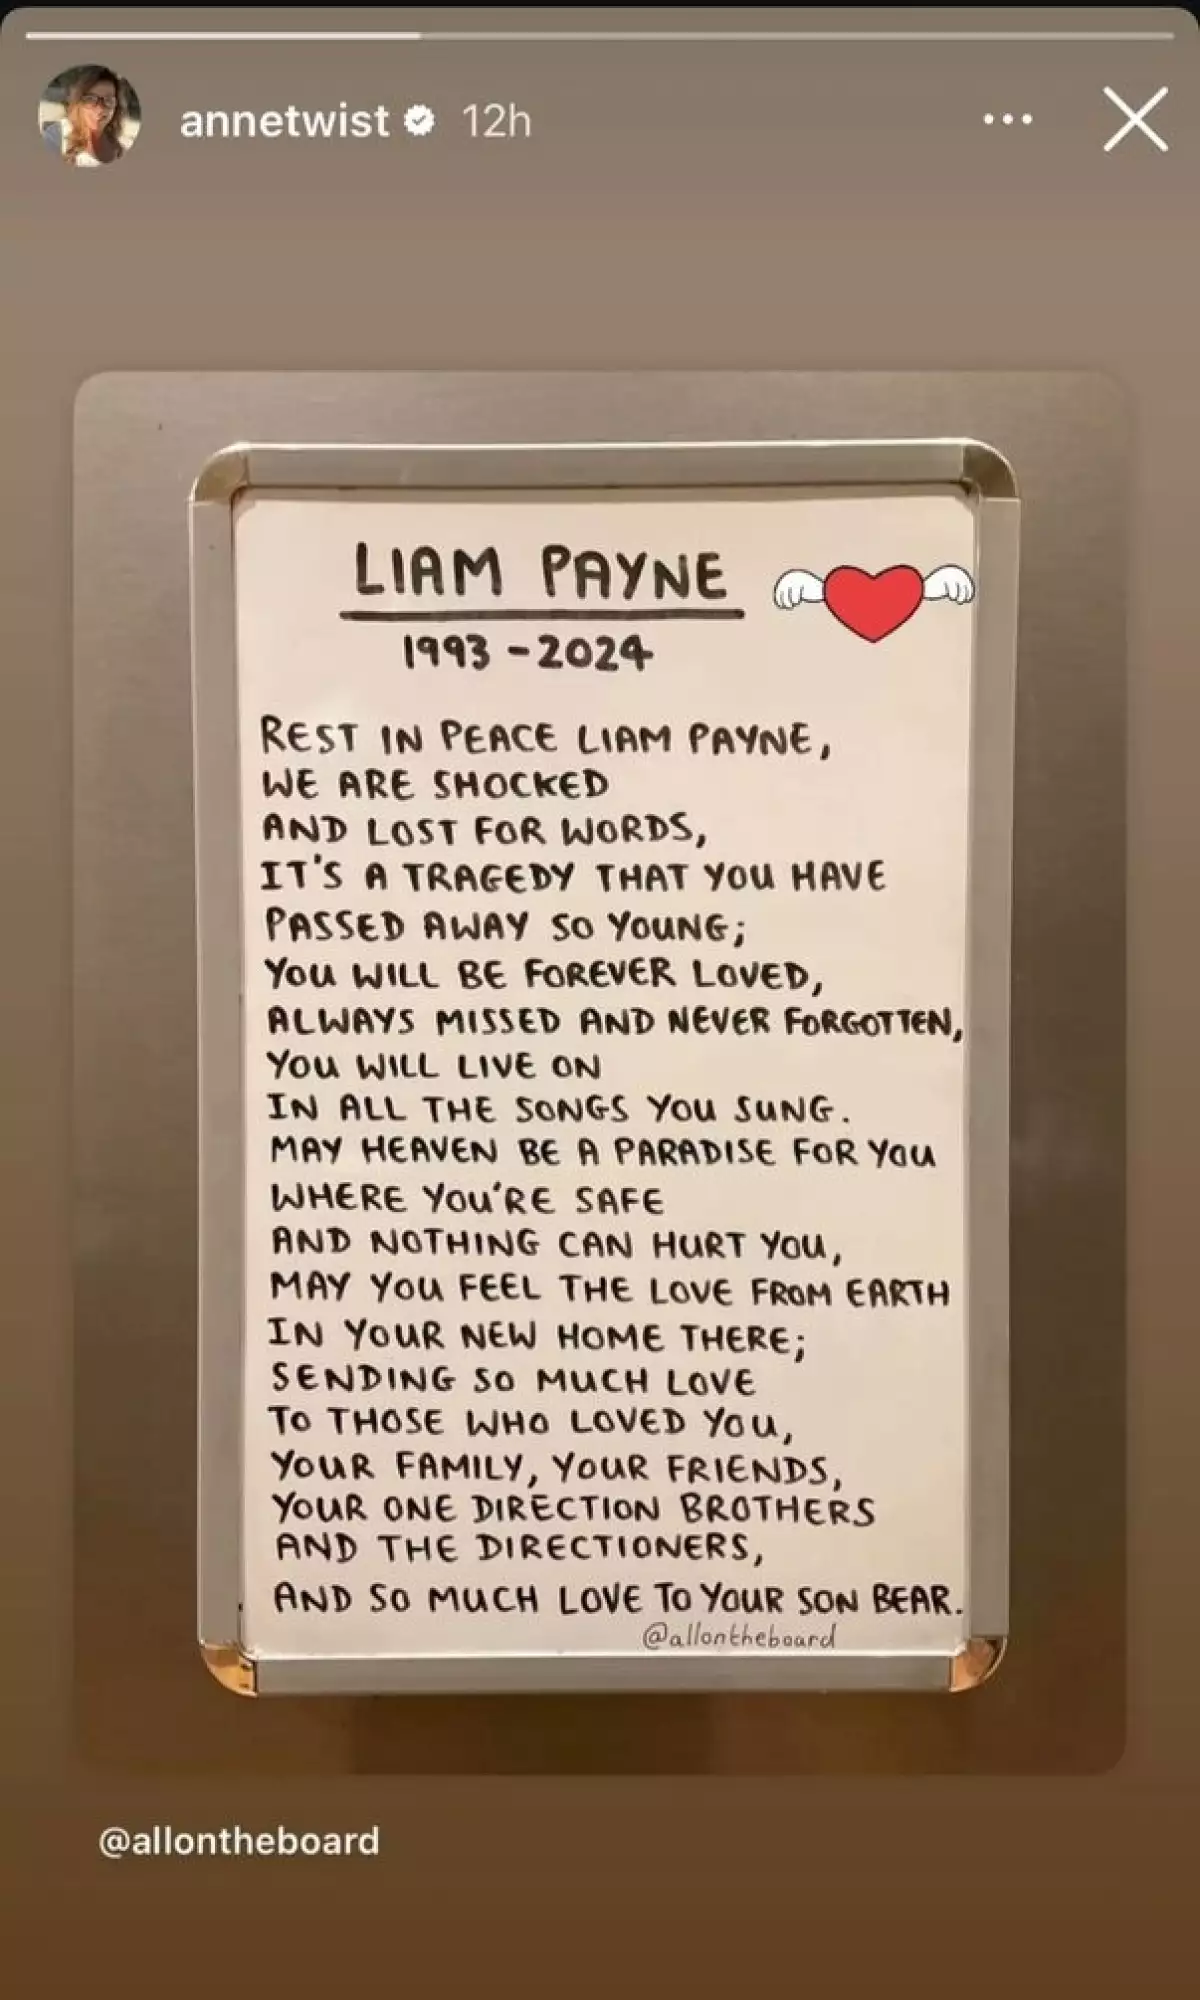 annetwist 12h
LIAM PAYNE
1993 - 2024
REST IN PEACE LIAM PAYNE,
WE ARE SHOCKED
AND LOST FOR WORDS,
IT'S A TRAGEDY THAT YOU HAVE
PASSED AWAY SO YOUNG;
YOU WILL BE FOREVER LOVED,
ALWAYS MISSED AND NEVER FORGOTTEN,
YOU WILL LIVE ON
IN ALL THE SONGS YOU SUNG.
MAY HEAVEN BE A PARADISE FOR YOU
WHERE YOU'RE SAFE
AND NOTHING CAN HURT YOU,
MAY YOU FEEL THE LOVE FROM EARTH
IN YOUR NEW HOME THERE;
SENDING SO MUCH LOVE
TO THOSE WHO LOVED YOU,
YOUR FAMILY, YOUR FRIENDS,
YOUR ONE DIRECTION BROTHERS
AND THE DIRECTIONERS,
AND SO MUCH LOVE TO YOUR SON BEAR.
@allontheboard
@allontheboard